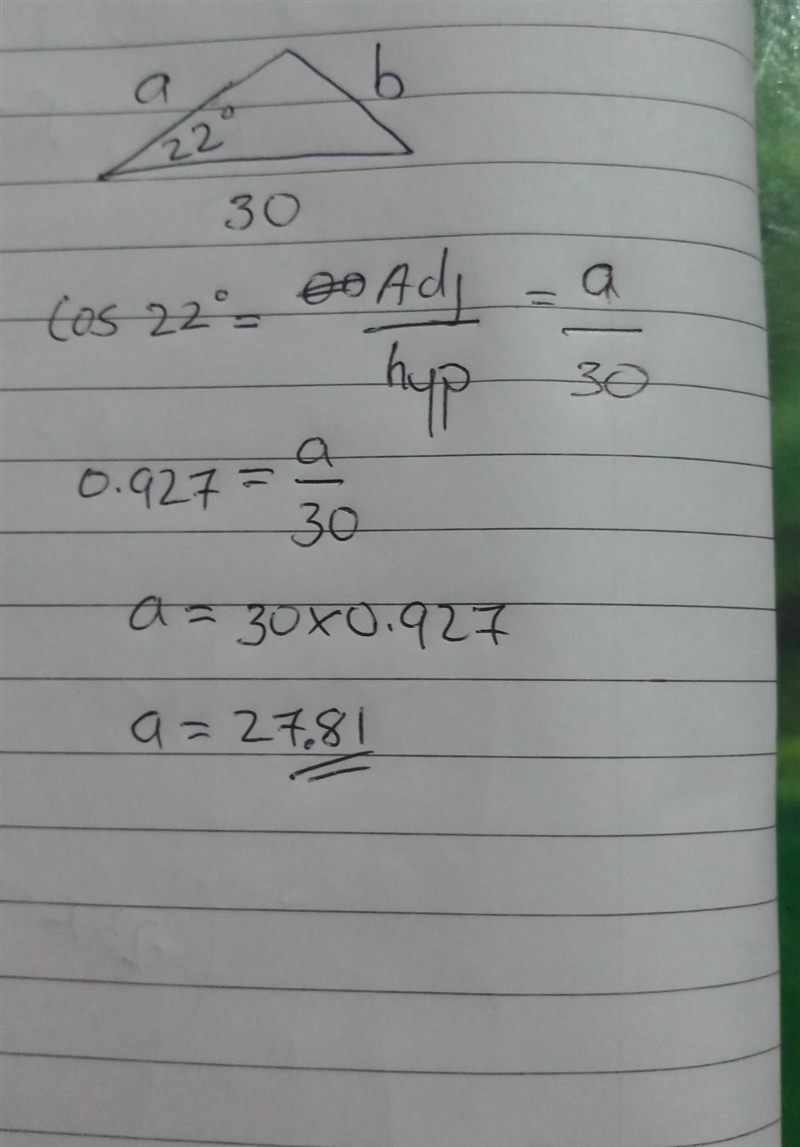 a b
22°
30
Cos 22° = Adj/hyp = a/30
0.927 = a/30
a = 30×0.927
a = 27.81